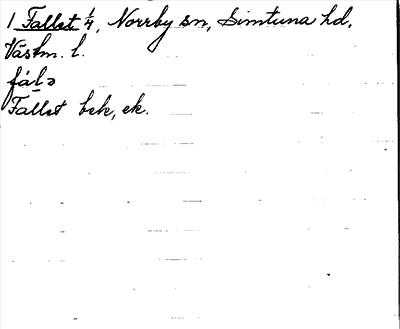 1 Fallet 1/4, Norrby sn, Simtuna hd,
Västm. l.
fálə
Fallet bek, ek.